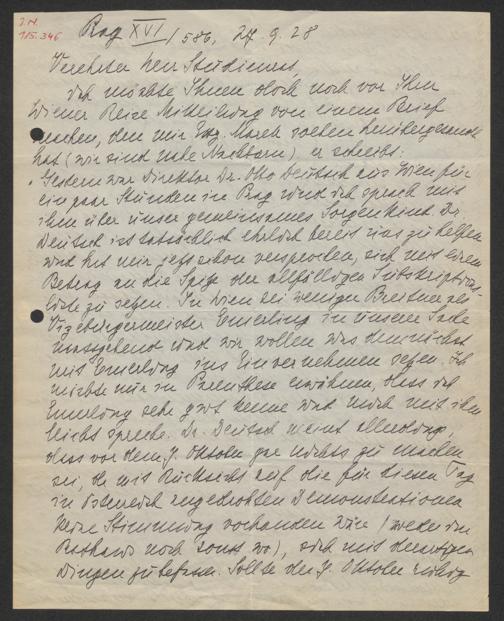 I.N.
115.346
Prag XVI/586, 27.9.28
Verehrter Herr Studienrat,
Ich möchte Ihnen doch noch vor Ihrer
Wiener Reise Mitteilung von einem Brief
machen, den mir Ing. Marek soeben herübergesandt
hat (wir sind nahe Nachbarn). er schreibt:
"Gestern war Direktor Dr. Otto Deutsch aus Wien für
ein paar Stunden in Prag und ich sprach mit
ihm über unser gemeinsames Sorgenkind. Dr.
Deutsch ist tatsächlich ehrlich bereit uns zu helfen
und hat mir jetzt schon versprochen, sich mit einem
Betrag an die Spitze der allfälligen Subskriptions-
liste zu setzen. In Wien sei weniger Breitner als
Vizebürgermeister Emerling in unserer Sache
massgebend und wir wollen uns demnächst
mit Emerling ins Einvernehmen setzen. Ich
möchte nur in Parenthese erwähnen, dass ich
Emerling sehr gut kenne und mich mit ihm
leicht spreche. Dr. Deutsch meint allerdings,
dass vor dem 7. Oktober gar nichts zu machen
sei, da mit Rücksicht auf die für diesen Tag
in Österreich angedrohten Demonstrationen
keine Stimmung vorhanden wäre (weder im
Rathaus noch sonst wo), sich mit derartigen
Dingen zu befassen. Sollte der 7. Oktober ruhig